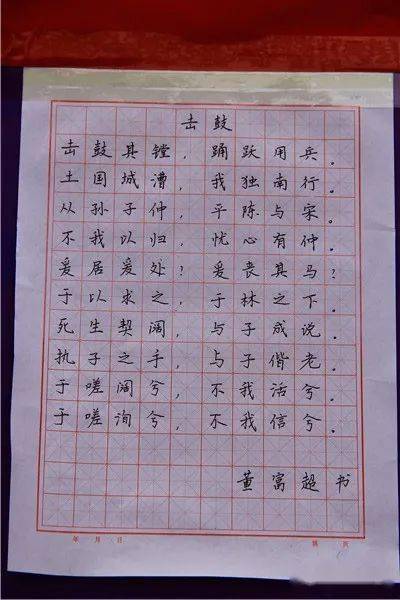 击鼓
击鼓其镗，踊跃用兵。
土国城漕，我独南行。
从孙子仲，平陈与宋。
不我以归，忧心有仲。
爰居爰处？爰丧其马？
于以求之，于林之下。
死生契阔，与子成说。
执子之手，与子偕老。
于嗟阔兮，不我活兮。
于嗟洵兮，不我信兮。
董富超书
年 月 日